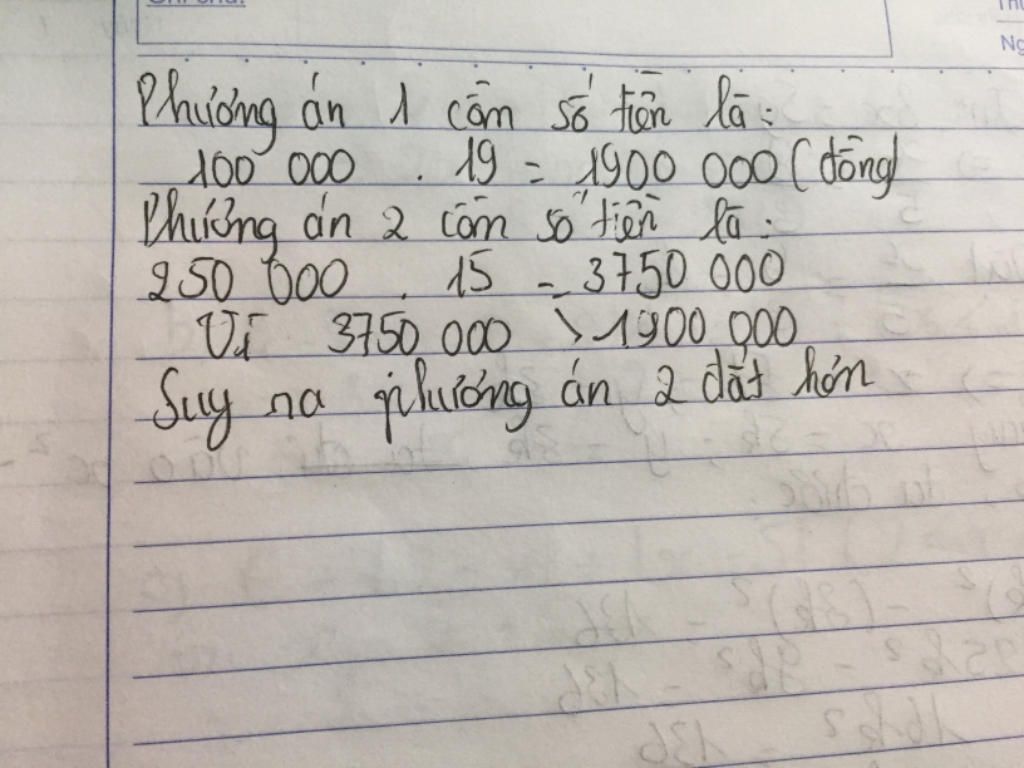 Ghi chú:
Phương án 1 cần số tiền là:
100 000 . 19 = 1900 000 (đồng)
Phương án 2 cần số tiền là:
250 000 . 15 = 3750 000
Vì 3750 000 > 1900 000
Suy ra phương án 2 đắt hơn